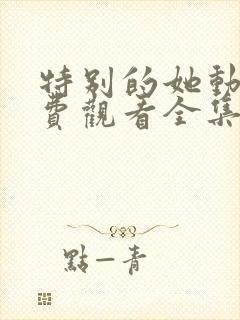 特别的她動
費觀看全集
點一青